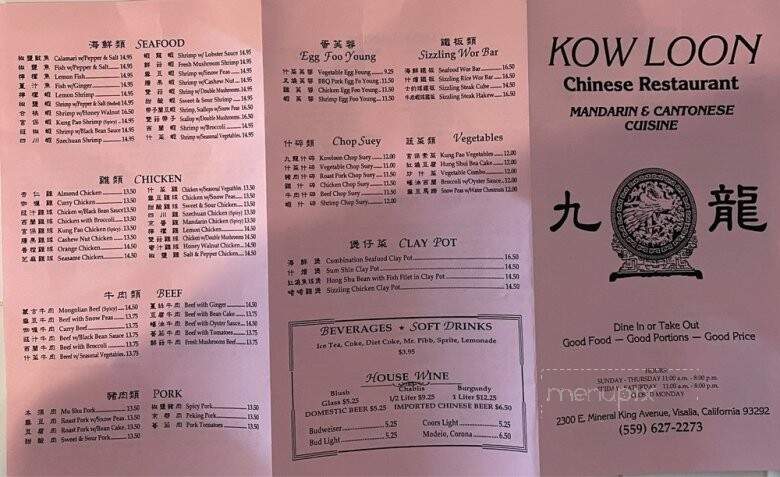 海鮮類 SEAFOOD
椒鹽魷魚 Calamari w/Pepper & Salt 14.95
椒鹽魚 Fish w/Pepper & Salt 14.95
檸檬魚 Lemon Fish 14.95
薑汁魚 Fish w/Ginger 14.95
檸檬蝦 Lemon Shrimp 14.95
椒鹽蝦 Shrimp w/Pepper & Salt 14.95
合桃蝦 Shrimp w/Honey Walnut 16.50
宮保蝦 Kung Pao Shrimp 14.95
豉椒蝦 Shrimp w/Black Bean Sauce 14.95
四川蝦 Szechuan Shrimp 14.95
蝦龍糊 Shrimp w/Lobster Sauce 14.95
鮮菇蝦 Fresh Mushroom Shrimp 14.95
雪豆蝦 Shrimp w/Snow Peas 14.95
腰果蝦 Shrimp w/Cashew Nut 14.95
雙菇蝦 Shrimp w/Double Mushrooms 14.95
甜酸蝦 Sweet & Sour Shrimp 14.95
帶子蘭豆蝦 Shrimp, Scallops w/Snow Peas 16.50
雙菇帶子 Scallop w/Double Mushrooms 16.50
西蘭蝦 Shrimp w/Broccoli 14.95
什菜蝦 Shrimp w/Seasonal Vegetables 14.95
雞類 CHICKEN
杏仁雞 Almond Chicken 13.50
咖喱雞 Curry Chicken 13.50
豉汁雞球 Chicken w/Black Bean Sauce 13.50
西蘭雞球 Chicken with Broccoli 13.50
宮保雞球 Kung Pao Chicken (Spicy) 13.50
腰果雞球 Cashew Nut Chicken 13.50
香橙雞球 Orange Chicken 13.50
芝麻雞球 Seasame Chicken 13.50
什菜雞 Chicken w/Seasonal Vegetables 13.50
雪豆雞球 Chicken w/Snow Peas 13.50
甜酸雞球 Sweet & Sour Chicken 13.50
四川雞 Szechuan Chicken (Spicy) 13.50
京蔥雞 Mandarin Chicken (Spicy) 13.50
檸檬雞 Lemon Chicken 13.50
雙菇雞 Chicken w/Double Mushrooms 13.50
蜜汁雞球 Honey Walnut Chicken 14.50
椒鹽雞 Salt & Pepper Chicken 14.50
牛肉類 BEEF
蒙古牛肉 Mongolian Beef (Spicy) 14.50
雪豆牛肉 Beef with Snow Peas 13.75
咖喱牛肉 Curry Beef 13.75
豉汁牛肉 Beef w/Black Bean Sauce 13.75
西蘭牛肉 Beef with Broccoli 13.75
什菜牛肉 Beef w/Seasonal Vegetables 13.75
薑蔥牛肉 Beef with Ginger 14.50
豆腐牛肉 Beef with Bean Cake 13.75
蠔油牛肉 Beef with Oyster Sauce 14.50
蕃茄牛肉 Beef with Tomatoes 13.75
鮮菇牛肉 Fresh Mushroom Beef 13.75
豬肉類 PORK
木須肉 Mu Shu Pork 13.50
雪豆肉 Roast Pork w/Snow Peas 13.50
豆腐肉 Roast Pork w/Bean Cake 13.50
甜酸肉 Sweet & Sour Pork 13.50
椒鹽豬肉 Spicy Pork 13.50
京都肉 Peking Pork 13.50
蕃茄肉 Pork Tomatoes 13.50
香芙蓉
Egg Foo Young
什菜芙蓉 Vegetable Egg Foung 9.25
叉燒芙蓉 BBQ Pork Egg Foo Young 11.50
雞芙蓉 Chicken Egg Foo Young 11.50
蝦芙蓉 Shrimp Foo Young 11.50
鐵板類
Sizzling Wor Bar
海鮮鐵板 Seafood Wor Bar 16.50
什燴鐵板 Sizzling Rice Wor Bar 16.50
士的球鐵板 Sizzling Steak Cube 14.50
牛肉蝦球鐵板 Sizzling Steak Hakew 16.50
什碎類 Chop Suey
九龍什碎 Kowloon Chop Suey 12.00
什菜什碎 Vegetable Chop Suey 11.00
豬肉什碎 Roast Pork Chop Suey 11.50
雞什碎 Chicken Chop Suey 11.50
牛肉什碎 Beef Chop Suey 12.00
蝦什碎 Shrimp Chop Suey 12.00
蔬菜類 Vegetables
宮保素菜 Kung Pao Vegetables 12.00
紅燒豆腐 Hung Shui Bea Cake 12.00
炒什菜 Vegetable Combo 12.00
蠔油西蘭 Broccoli w/Oyster Sauce 12.00
雪豆馬蹄 Snow Peas/w/Water Chestnuts 12.00
煲仔菜 CLAY POT
海鮮煲 Combination Seafood Clay Pot 16.50
什燴煲 Sum Shin Clay Pot 14.50
紅燒魚球煲 Hong Shu Bean with Fish Filet in Clay Pot 14.50
啫啫雞煲 Sizzling Chicken Clay Pot 14.50
BEVERAGES ★ SOFT DRINKS
Ice Tea, Coke, Diet Coke, Mr. Pibb, Sprite, Lemonade
$3.95
HOUSE WINE
Blush Chablis Burgundy
Glass $5.25 1/2 Liter $9.25 1 Liter $12.25
DOMESTIC BEER $5.25 IMPORTED CHINESE BEER $6.50
Budweiser 5.25 Coors Light 5.25
Bud Light 5.25 Modelo, Corona 6.50
KOW LOON
Chinese Restaurant
MANDARIN & CANTONESE
CUISINE
九 龍
Dine In or Take Out
Good Food — Good Portions — Good Price
HOURS:
SUNDAY - THURSDAY 11:00 a.m. - 8:00 p.m.
FRIDAY - SATURDAY 11:00 a.m. - 8:00 p.m.
CLOSED MONDAY
menupix
2300 E. Mineral King Avenue, Visalia, California 93292
(559) 627-2273